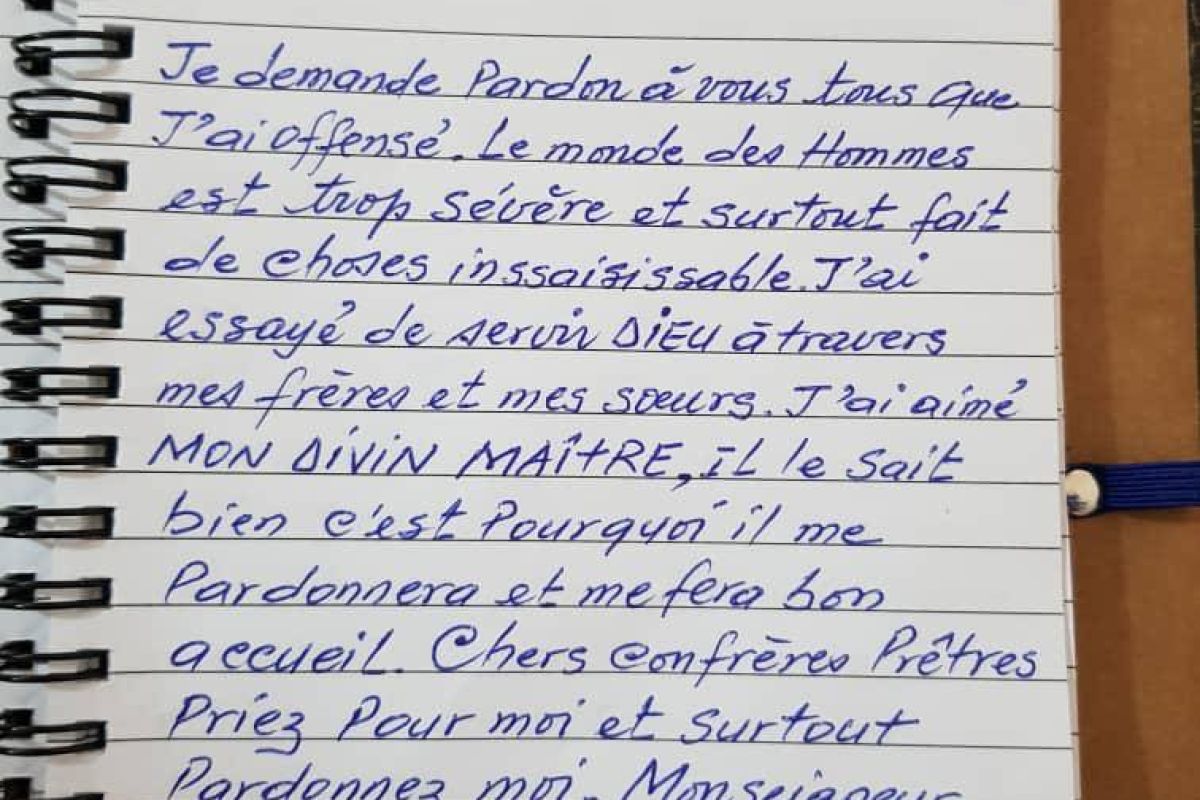 Je demande Pardon à vous tous que
J'ai offensé. Le monde des Hommes
est trop sévère et surtout fait
de choses inssaisissable. J'ai
essayé de servir DIEU à travers
mes frères et mes sœurs. J'ai aimé
MON DIVIN MAÎTRE, il le sait
bien c'est Pourquoi il me
Pardonnera et me fera bon
accueil. Chers confrères Prêtres
Priez Pour moi et surtout
Pardonnez moi. Monseigneur